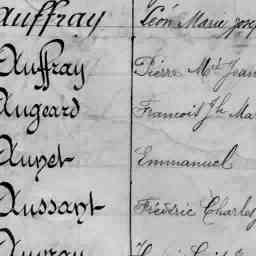 Auffray Léon Marie Josep
Auffray Pierre Mie Jean
Augeard Francois Jh Mar
Aunet Emmanuel
Aussant Frédéric Charles